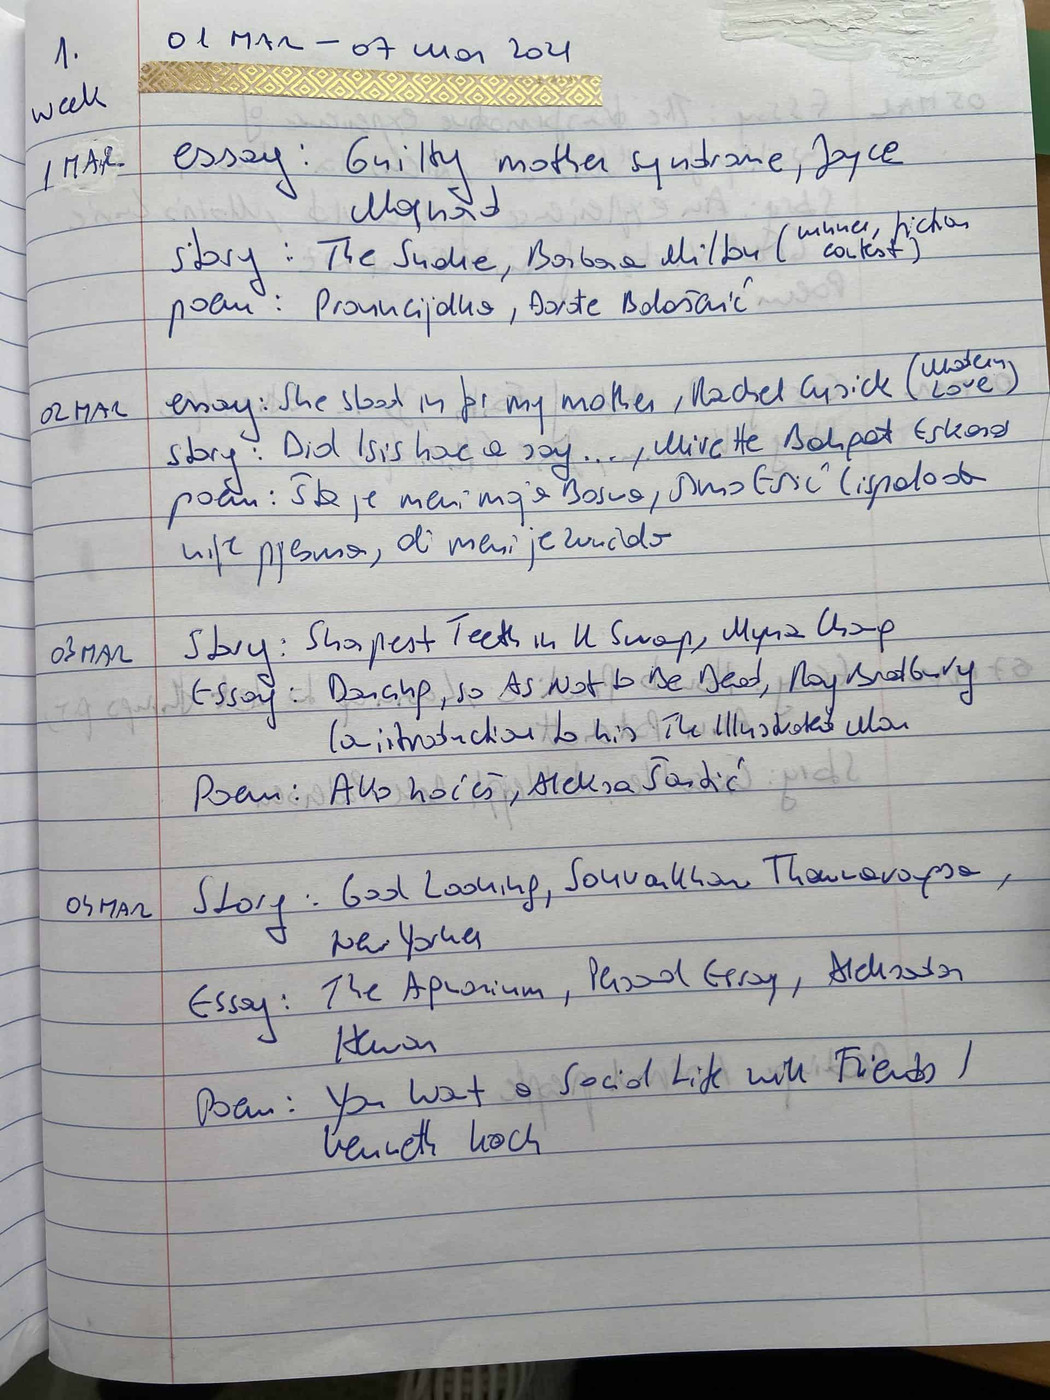 1.
week
01 MAR – 07 Mar 2021
1 MAR.
essay: Guilty mother syndrome, Joyce
Maynard
story: The Snake, Barbara Milton (winner, fiction
contest)
poem:
02 MAR
essay: She stood in for my mother, Rachel Cusick (Modern
Love)
story: Did Isis have a say..., Mirette Bahgat Eskaros
poem: Šta je meni moja Bosna, (ispaloda
nije pjesma, al meni je zvučalo
03 MAR
Story: Sharpest Teeth in K Swamp, Myna Chang
Essay: Dancing, so As Not to Be Dead, Ray Bradbury
(a introduction to his The Illustrated Man
Poem: Ako hoćeš, Aleksa Šantić
04 MAR
Story: Good Looking, Souvankham Thammavongsa,
New Yorker
Essay: The Aquarium, Personal Essay, Aleksandar
Hemon
Poem: You Want a Social Life with Friends /
Kenneth Koch